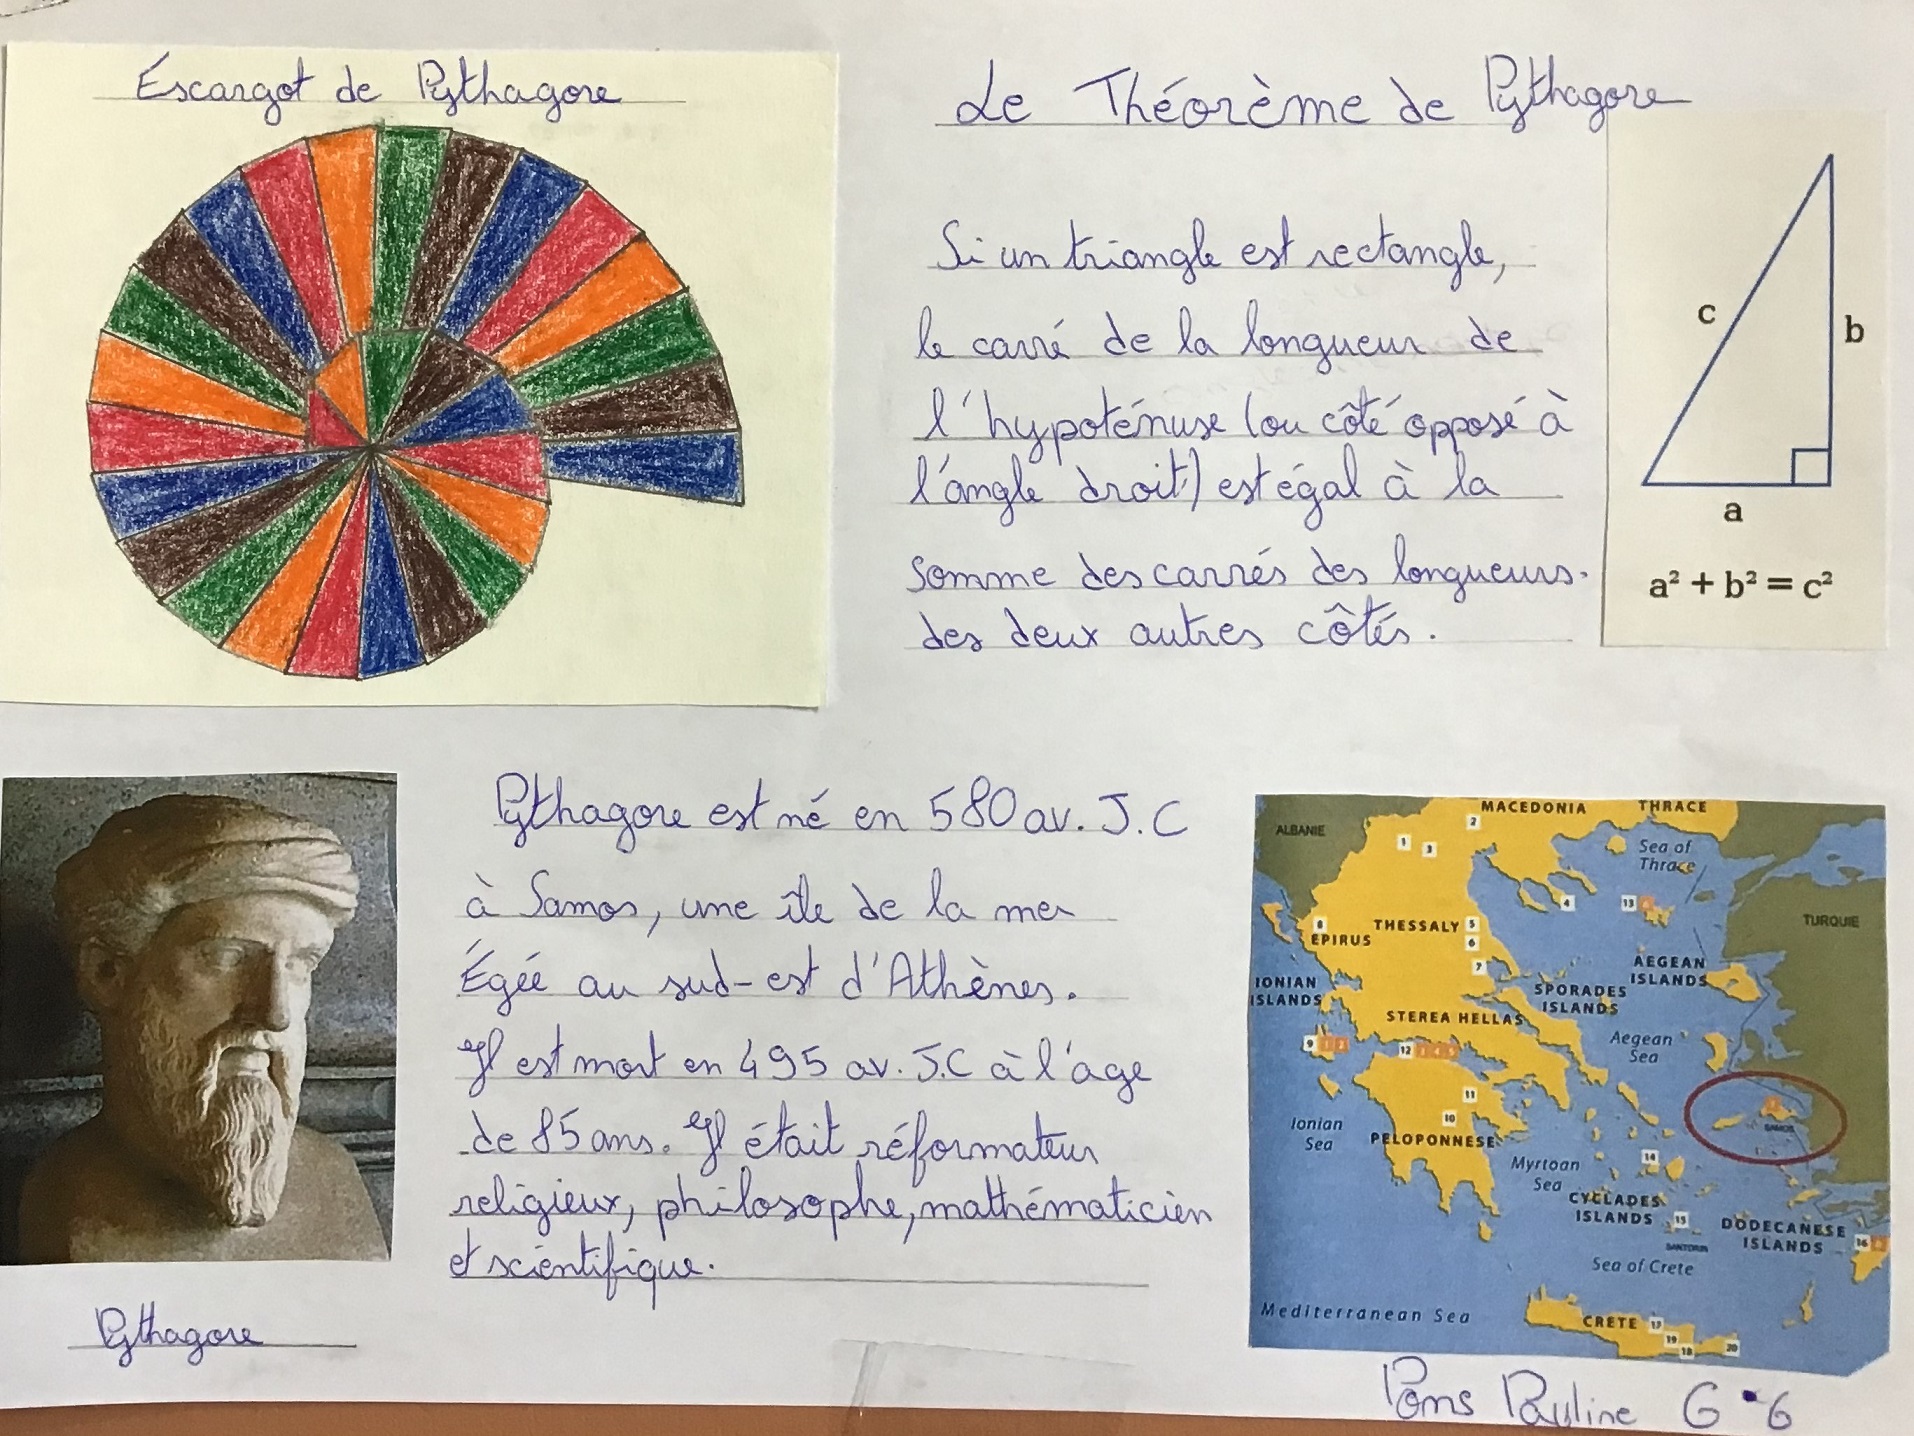 Escargot de Pythagore
Le Théorème de Pythagore
Si un triangle est rectangle,
le carré de la longueur de
l'hypoténuse (ou côté opposé à
l'angle droit) est égal à la
somme des carrés des longueurs
des deux autres côtés.
c
b
a
a² + b² = c²
Pythagore est né en 580 av. J.C
à Samos, une île de la mer
Égée au sud-est d'Athènes.
Il est mort en 495 av. J.C à l'âge
de 85 ans. Il était réformateur
religieux, philosophe, mathématicien
et scientifique.
Pythagore
MACEDONIA
THRACE
ALBANIE
2
1
3
Sea of
Thrace
4
13
TURQUIE
8
EPIRUS
THESSALY
5
6
7
AEGEAN
ISLANDS
IONIAN
ISLANDS
SPORADES
ISLANDS
STEREA HELLAS
Aegean
Sea
9
12
11
10
SAMOS
Ionian
Sea
PELOPONNESE
Myrtoan
Sea
14
CYCLADES
ISLANDS
15
SANTORIN
DODECANESE
ISLANDS
16
Sea of Crete
Mediterranean Sea
CRETE
17
19
18
20
Pons Pauline 6•6